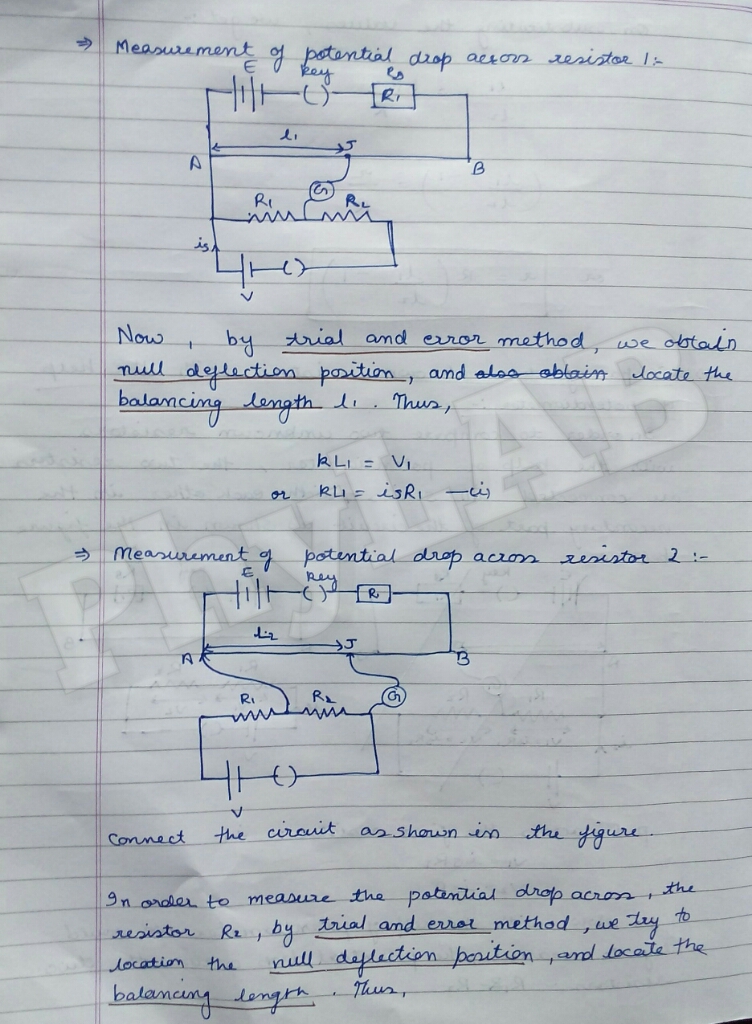 ⇒ Measurement of potential drop across resistor 1:-
E key Rs
R1
l1 J
A B
G
R1 R2
is
V
Now, by trial and error method, we obtain
null deflection position, and also obtain locate the
balancing length l1. Thus,
kL1 = V1
or kL1 = isR1 —(i)
⇒ Measurement of potential drop across resistor 2 :-
E key
R
L2 J
A B
R1 R2 G
V
Connect the circuit as shown in the figure.
In order to measure the potential drop across, the
resistor R2, by trial and error method, we try to
location the null deflection position, and locate the
balancing length. Thus,
PhyLAB